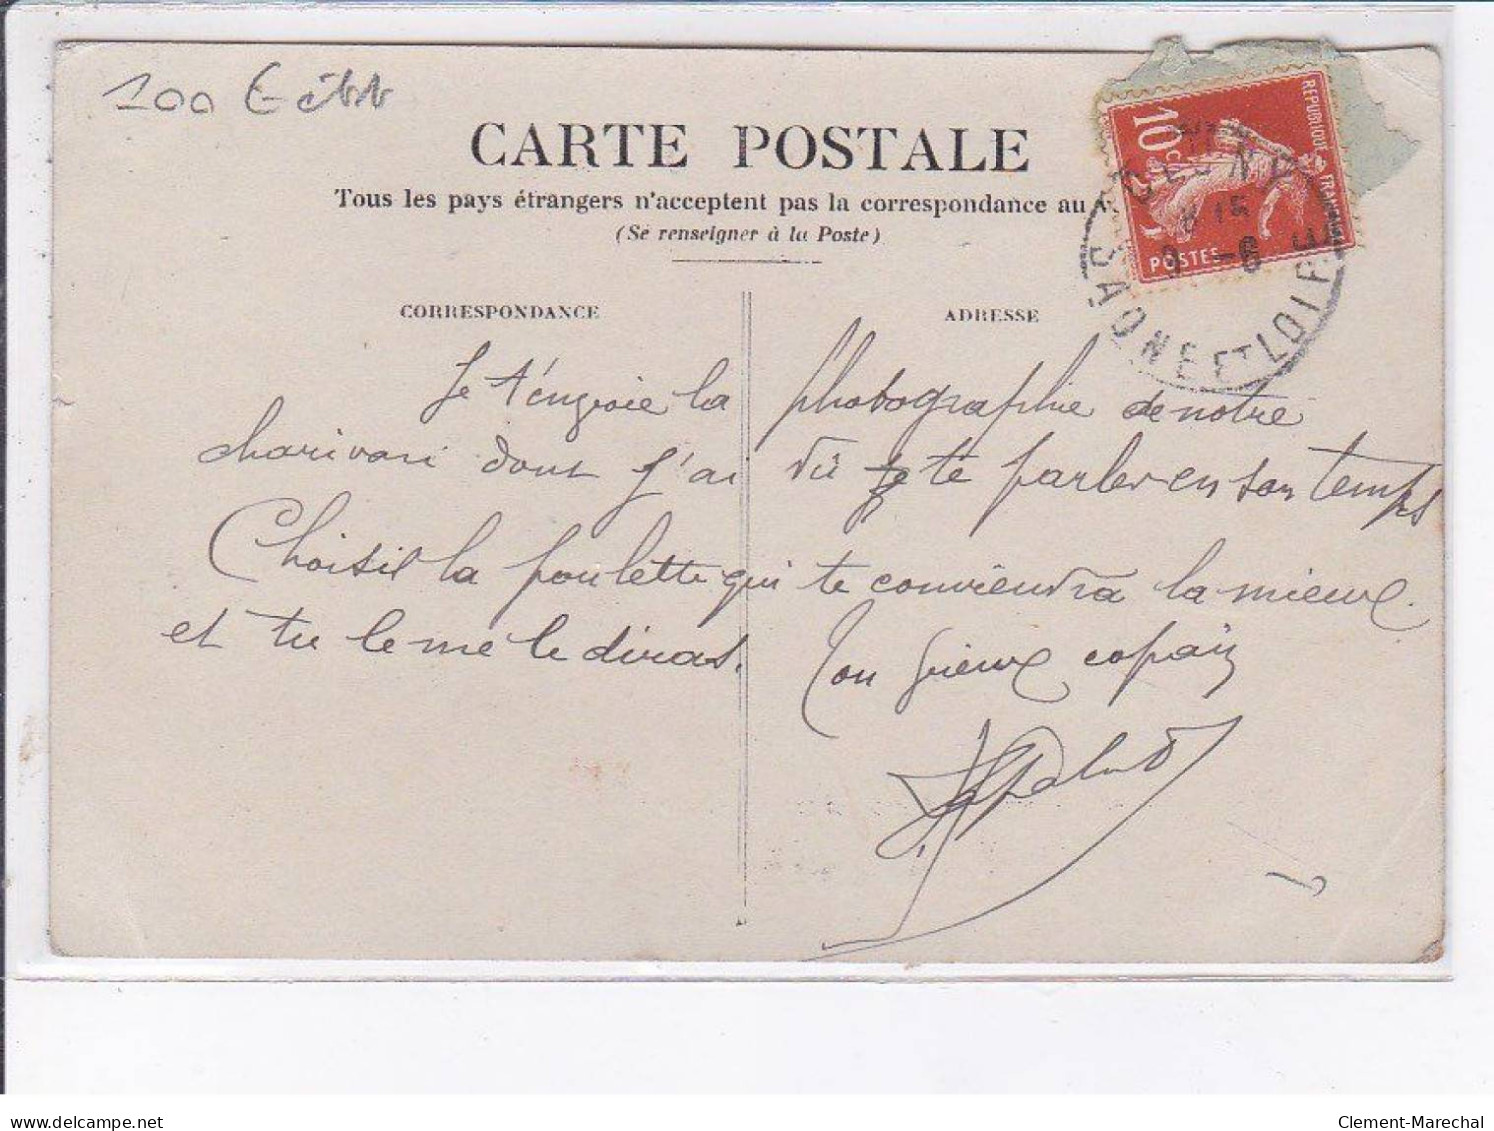 100 €
CARTE POSTALE
Tous les pays étrangers n'acceptent pas la correspondance au
(Se renseigner à la Poste)
CORRESPONDANCE
ADRESSE
REPUBLIQUE FRANÇAISE
10c
POSTES
SAONE ET LOIRE
Je t'envoie la photographie de notre
charivari dont j'ai dû te parler en son temps
Choisis la poulette qui te conviendra la mieux
et tu le me le diras.
Ton vieux copain
delcampe.net
Clement-Marechal